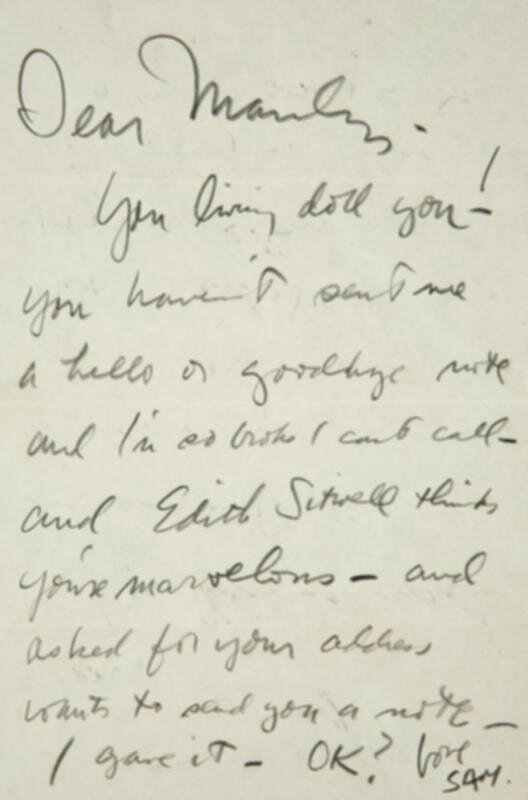 Dear Marilyn.
You living doll you—!
you haven't sent me
a hello or goodbye note
and I'm so broke I can't call—
and Edith Sitwell thinks
you're marvelous — and
asked for your address
wants to send you a note —
I gave it — OK? Love
SAM.